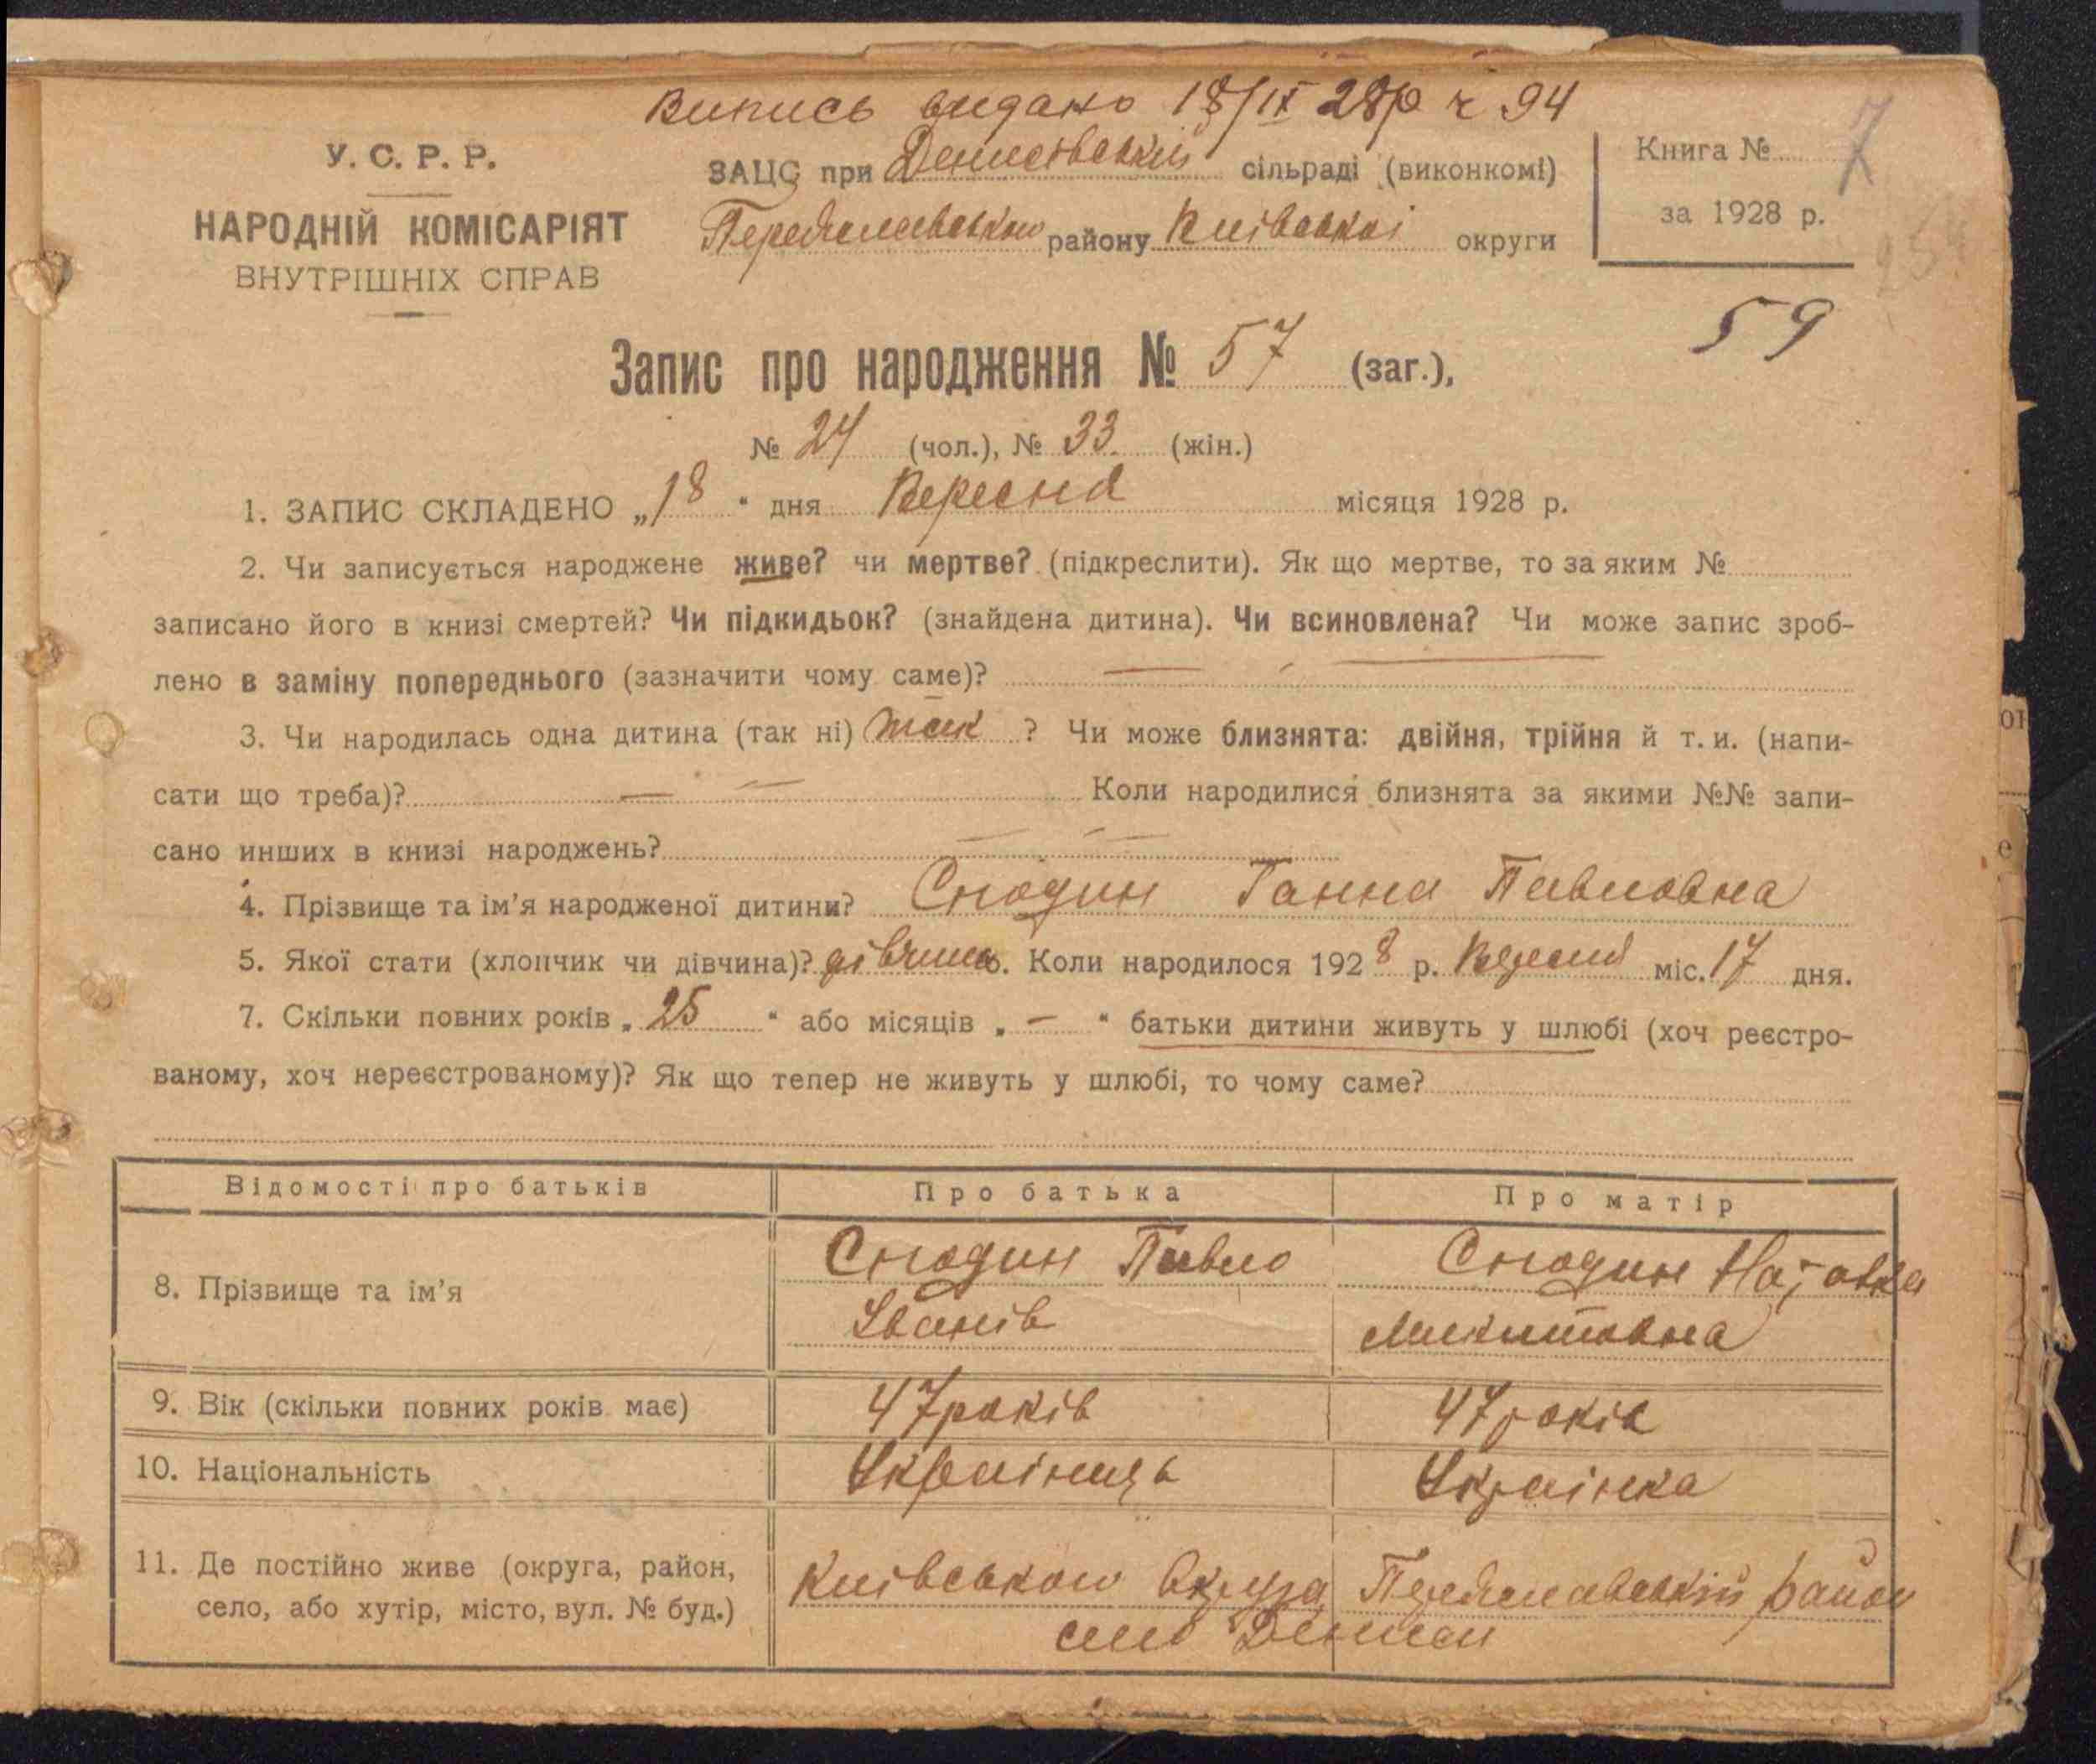 Випись видано 18/IX 28р ч 94
У. С. Р. Р.
НАРОДНІЙ КОМІСАРІЯТ
ВНУТРІШНІХ СПРАВ
ЗАЦС при Денисівський сільраді (виконкомі)
Переяславського району Київської округи
Книга № 7
за 1928 р.
59
Запис про народження № 57 (заг.),
№ 24 (чол.), № 33 (жін.)
1. ЗАПИС СКЛАДЕНО „18“ дня Вересня місяця 1928 р.
2. Чи записується народжене живе? чи мертве? (підкреслити). Як що мертве, то за яким №
записано його в книзі смертей? Чи підкидьок? (знайдена дитина). Чи всиновлена? Чи може запис зроб-
лено в заміну попереднього (зазначити чому саме)? —
3. Чи народилась одна дитина (так ні) так ? Чи може близнята: двійня, трійня й т. и. (напи-
сати що треба)? — — Коли народилися близнята за якими №№ запи-
сано инших в книзі народжень? — — —
4. Прізвище та ім’я народженої дитини? Сподин Ганна Павловна
5. Якої стати (хлопчик чи дівчина)? дівчина 6. Коли народилося 1928 р. Вересня міс. 17 дня.
7. Скільки повних років „25“ або місяців „—“ батьки дитини живуть у шлюбі (хоч реєстро-
ваному, хоч нереєстрованому)? Як що тепер не живуть у шлюбі, то чому саме?
Відомості про батьків Про батька Про матір
8. Прізвище та ім’я Сподин Павло Сподин
Іванів Микитовна
9. Вік (скільки повних років має) 47 років 47 років
10. Національність Українець Українка
11. Де постійно живе (округа, район, Київською Округа Переяславський район
село, або хутір, місто, вул. № буд.) село Дениси